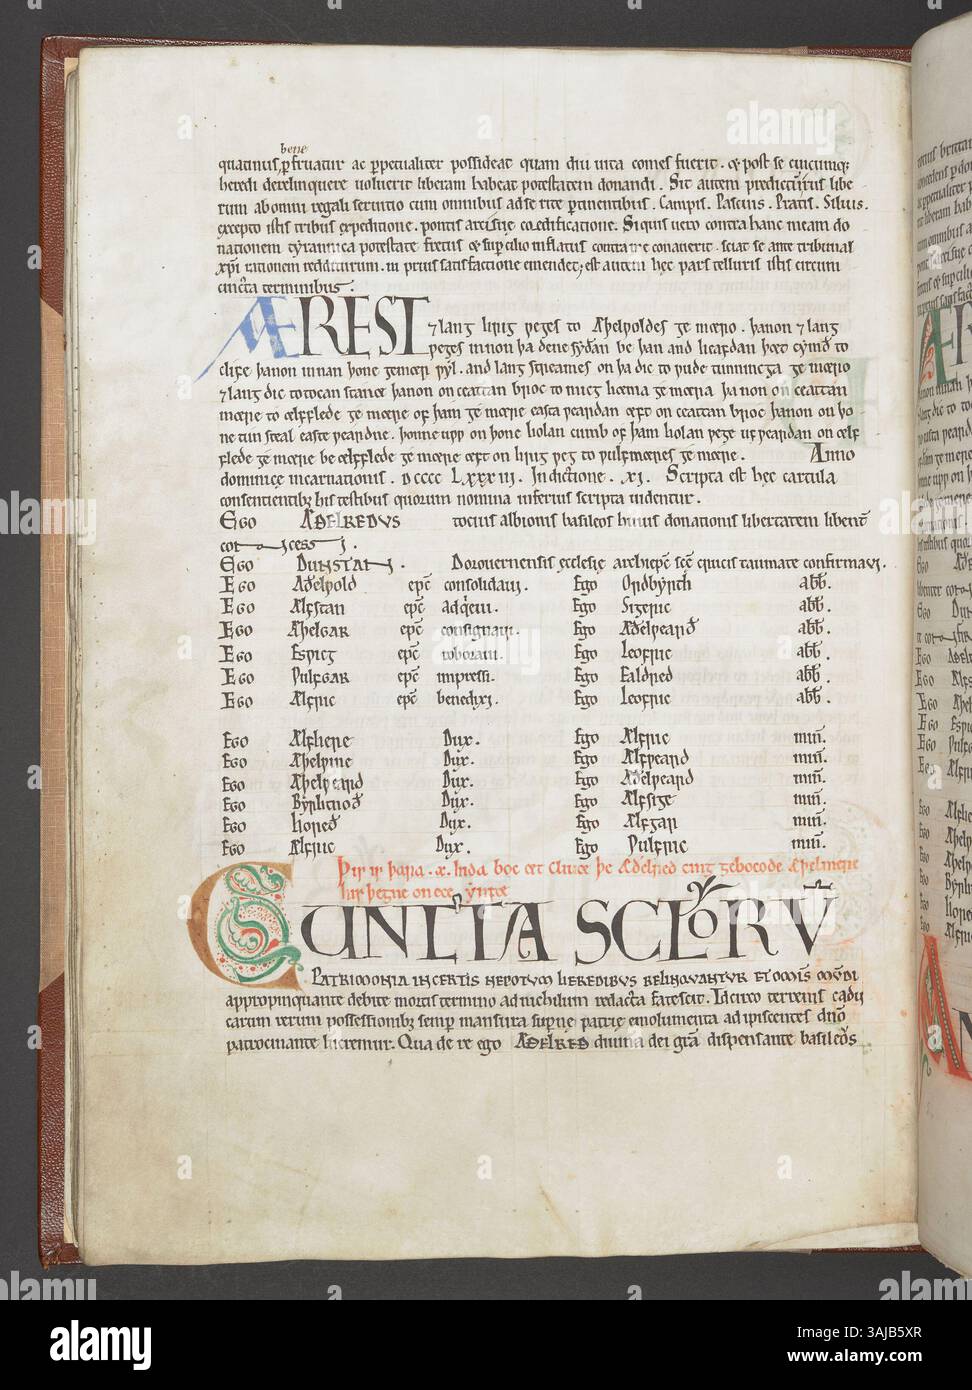 bene
quatinus p̱fruatur ac p̱petualiter possideat quam diu uita comes fuerit . ⁊ post se cuicumq;
heredi derelinquere uoluerit liberam habeat potestatem donandi . Sit autem predictũ rus libe
rum ab omni regali seruitio cum omnibus ad se rite ṗtinentibus . Campis . Pascuis . Pratis . Siluis .
excepto istis tribus expeditione . pontis arcisue coedificatione . Siquis uero contra hanc meam do
nationem tyrannica potestate fretus ⁊ sup̱cilio inflatus contraire conauerit . sciat se ante tribunal
xp̄i rationem redditurum . ni prius satisfactione emendet ; est autem hec pars telluris istis circum
cincta terminibus .
ÆREST ⁊lang hrig ƿeges to Aþelƿoldes ge mære . þanon ⁊lang
ƿeges
clife þanon innan þone gemær ƿyl . and lang streames on
⁊lang dic to tocan stance þanon on ceattan broc to
mære to ælfflede ge mære of þam ge mære easta ƿeardan eft on ceattan broc þanon on ho
ne tun steal easte ƿeardne . þonne upp on þone holan cumb of þam holan ƿege ufeƿeardan on ælf
flede ge mære be ælfflede ge mære eft on hrig ƿeg to ƿulfmæres ge mære . Anno
dominicę incarnationis . DCCCC LXXXIII . Indictione . XI . Scripta est hęc cartula
consentientib; his testibus quorum nomina inferius scripta uidentur .
EGO AÐELREDUS tocius albionis basileos huius donationis libertatem libent̄
EGO DUNSTAN . Dorouernensis ecclesię archiep̄c sc̄ę crucis taumate confirmaui .
EGO Aðelƿold ep̄c consolidaui . Ego Ordbyrht abb̄ .
EGO Ælfstan ep̄c adq̇eui . Ego Sigeric abb̄ .
EGO Aþelgar ep̄c consignaui . Ego Aðelƿeard abb̄ .
EGO Esƿig ep̄c roboraui . Ego Leofric abb̄ .
EGO Ƿulfgar ep̄c impressi . Ego Ealdred abb̄ .
EGO Ælfric ep̄c benedixi . Ego Leofric abb̄ .
EGO Ælfhere Dux . Ego Ælfric min̄ .
EGO Aþelƿine Dux . Ego Ælfƿeard min̄ .
EGO Aþelƿeard Dux . Ego Aðelƿeard min̄ .
EGO Byrhtnoð Dux . Ego Ælfsige min̄ .
EGO Þoreð Dux . Ego Ælfgar min̄ .
EGO Ælfric Dux . Ego Ƿulfric min̄ .
Þis is þara .x. hida boc æt Cliue þe Aðelred cing gebocode Aþelmere
his þegne on ece yrfe
CUNCTA SCL̄ORV̄
PATRIMONIA INCERTIS NEPOTUM HEREDIBUS RELINQVANTVR ET OM̄IS MVNDI
appropinquante debite mortis termino ad nichilum redacta fatescit . Idcirco terrenis
carum rerum possessionib; semp̱ mansura sup̱ne patrie emolumenta adipiscentes dn̄o
patrocinante lucremur . Qua de re ego AÐELRED diuina dei gr̄a dispensante basileos
alamy
Image ID: 3AJB5XR
www.alamy.com